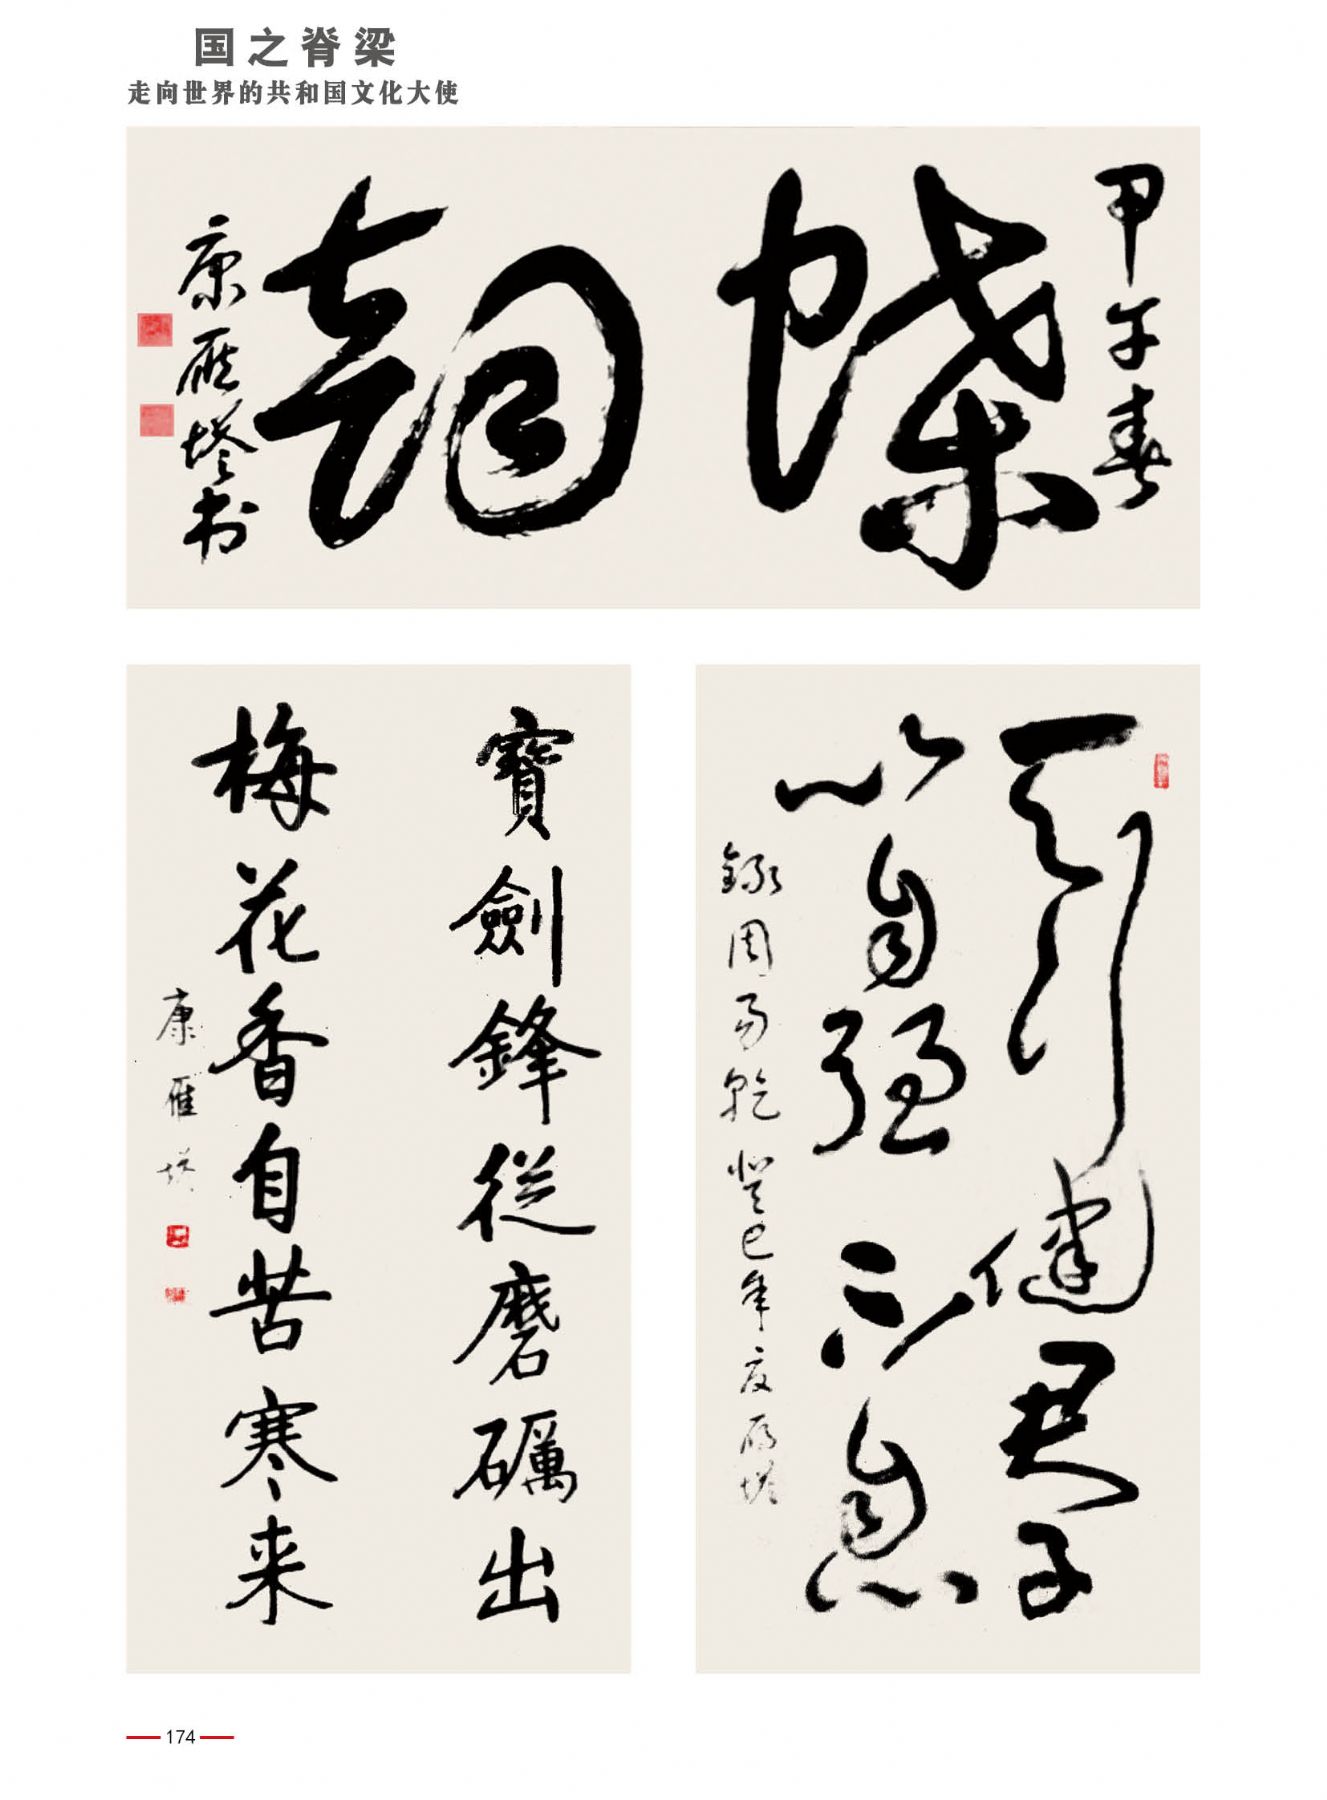 国之脊梁
走向世界的共和国文化大使
甲午春
蝶韵
康雁塔书
天行健君子
以自强不息
錄周易乾癸巳年夏雁塔
寶劍鋒從磨礪出
梅花香自苦寒来
康雁塔
174